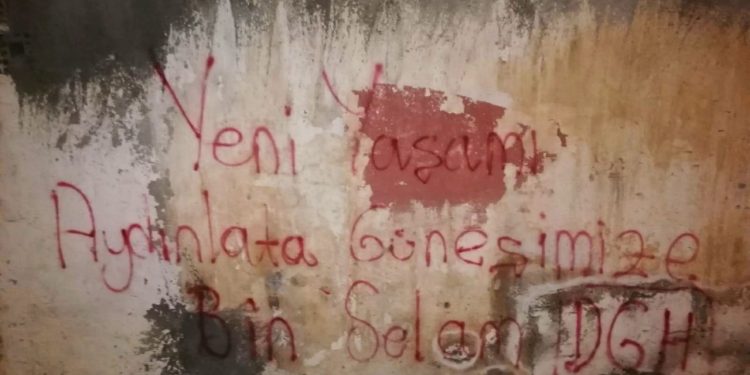 Yeni Yaşamı
Aydınlata Güneşimize
Bin Selam DGH